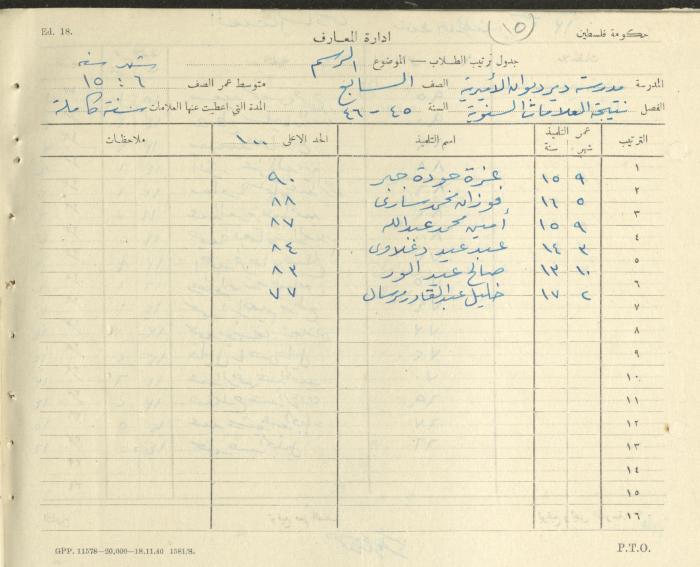 Ed. 18.
(١٥)
حكومة فلسطين
ادارة المعارف
جدول ترتيب الطلاب — الموضوع الرسم
شهر سنة
المدرسة مدرسة دير ديوان الأميرية الصف السابع متوسط عمر الصف ٦ : ١٥
الفصل نتيجة العلامات السنوية السنة ٤٥ - ٤٦ المدة التي اعطيت عنها العلامات سنة كاملة
الترتيب عمر التلميذ اسم التلميذ الحد الاعلى ١٠٠ ملاحظات
شهر سنة
١ ٩ ١٥ عزة جودة جبر ٩٠
٢ ٥ ١٦ فوزان محمد ساري ٨٨
٣ ٩ ١٥ أمين محمد عبدالله ٨٧
٤ ٣ ١٤ عبد عيد دغلاوي ٨٤
٥ ١٠ ١٣ صالح عبد ٨٣
٦ ٢ ١٧ خليل عبدالقادر مرسال ٧٧
٧
٨
٩
١٠
١١
١٢
١٣
١٤
١٥
١٦
GPP. 11578—20,000—18.11.40 1581/S.
P.T.O.